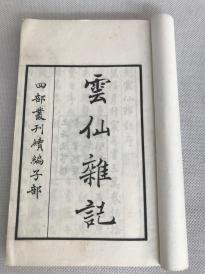 雲仙雜記
四部叢刊續編子部